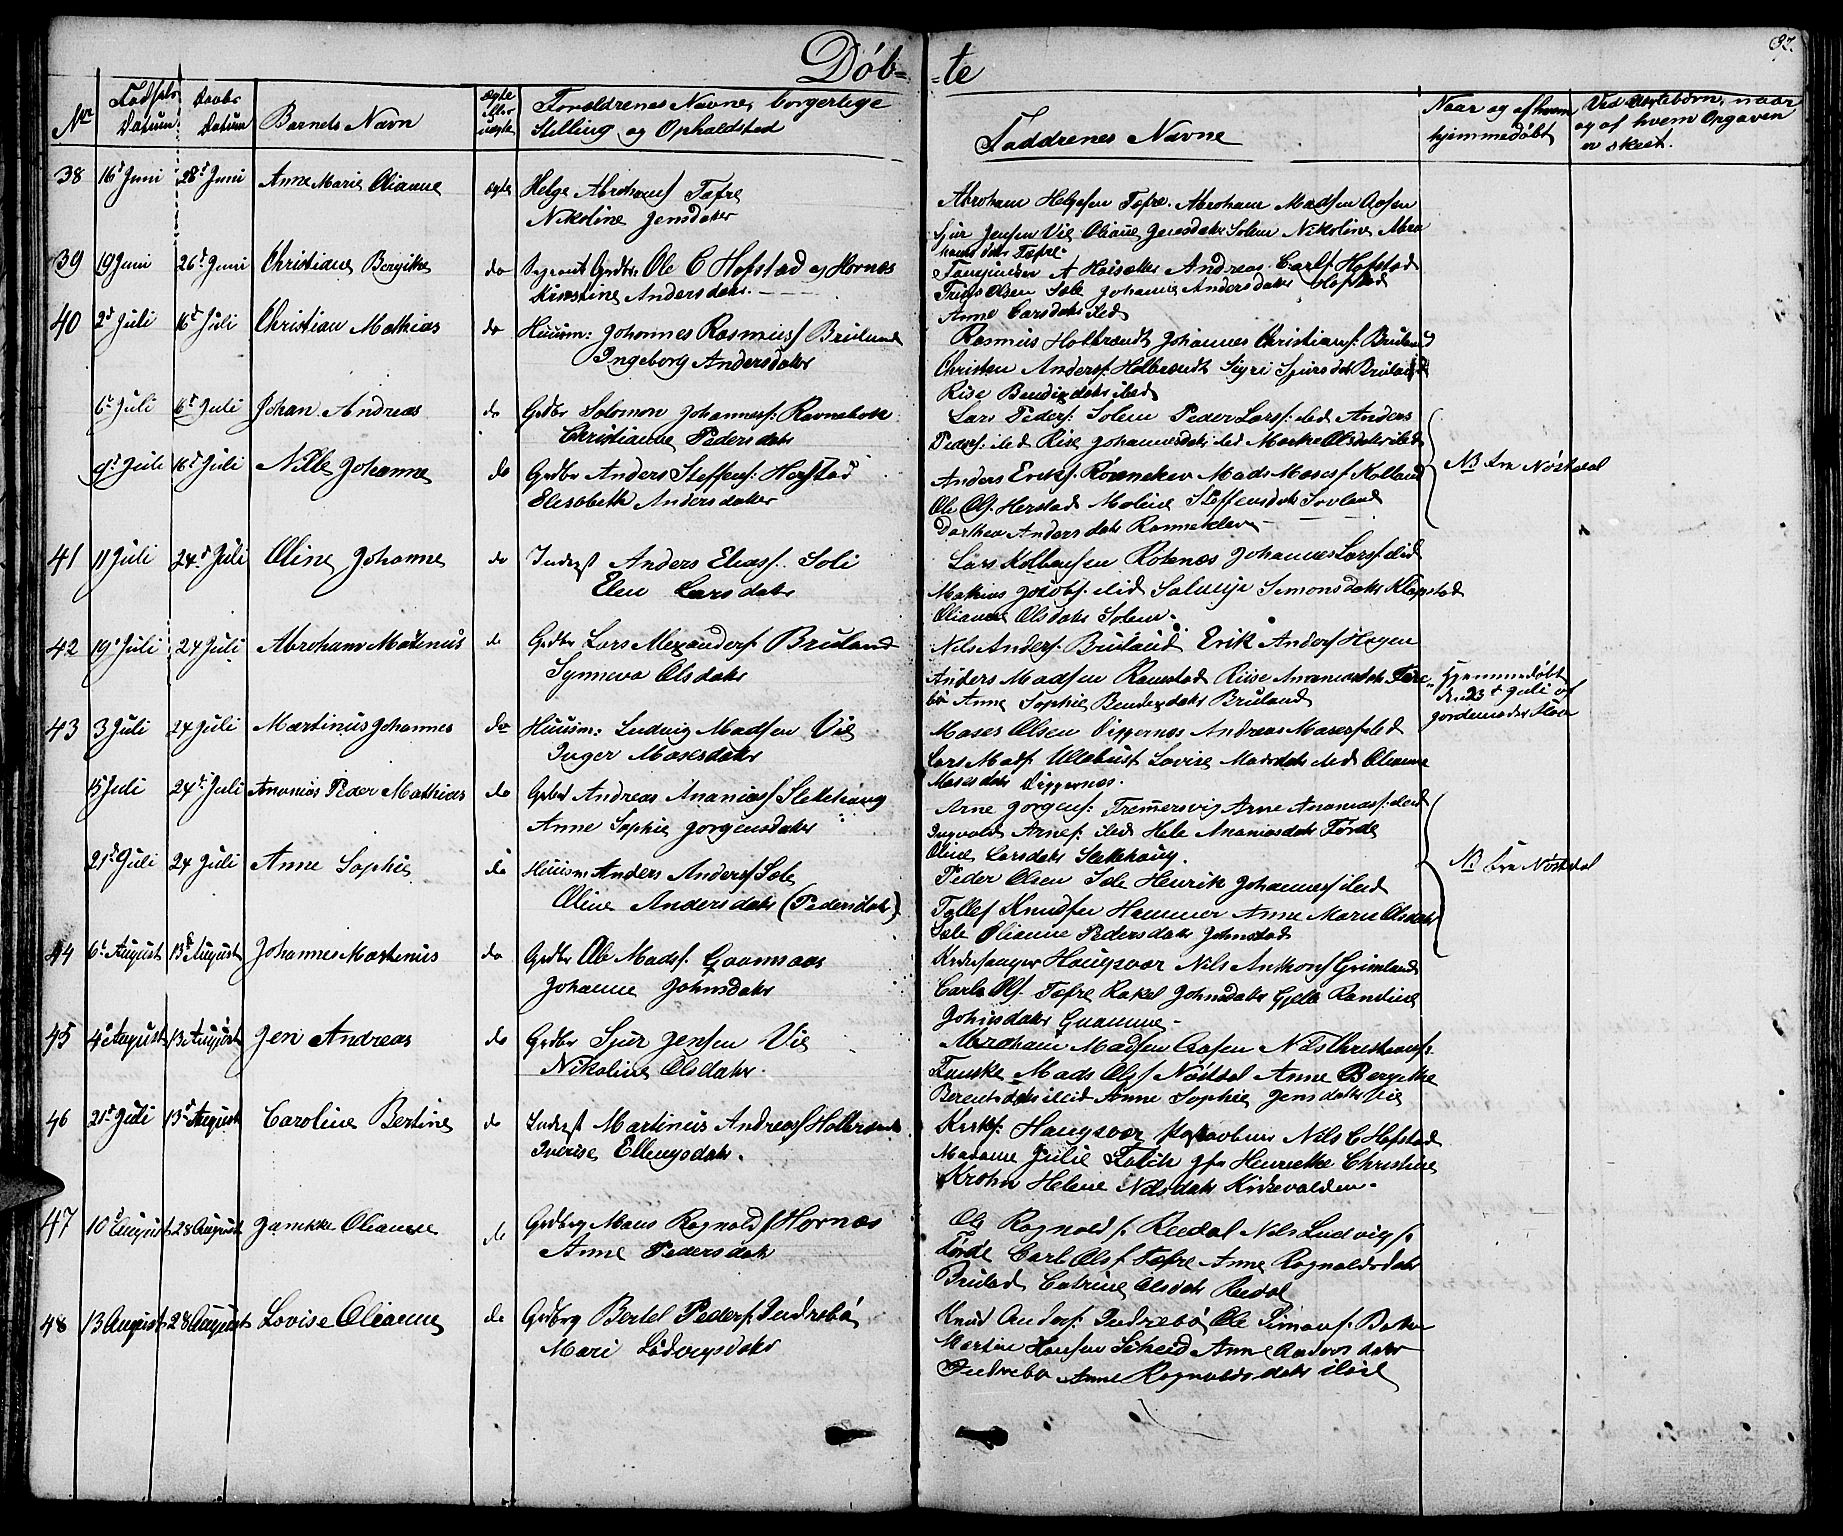 Döb- -te
37.
No
Fødsels Datum
Daabs Datum
Barnets Navn
Ægte eller uægte
Forældrenes Navne, borgerlige
Stilling og Opholdsted
Faddrenes Navne
Naar og af hvem
hjemmedøbt
Ved uægtebørn, naar
og af hvem Opgaven
er skeet.
38 16d Juni 28d Juni Anne Marie Oliane ægte Helge Abrahams Tefre
Nikoline Jensdatr
Abraham Helgesen Tefre. Abraham Madsen Aasen
Sjur Jensen Vie Oliane Jensdatr Solem Nikoline Abra
hamsdatr Tefre
39 19 Juni 26d Juni Christiane Bergitte do Sergeant Grdbr Ole C Hofstad og Hornæs
Kirstine Andersdatr.
A Andreas Carls Hofstad
Olsen Sæle Johanne Andersdatr Hofstad
Anne Larsdatr ibid
40 2d Juli 16d Juli Christian Mathias do Huusm: Johannes Rasmuss Bruland
Ingeborg Andersdatr
Rasmus Holbrandt Johannes Christians: Bruland
Christen Anders: Holbrandt Sigri Sjursdtr Bruland
Rise Bendixdatr ibid
6d Juli 16d Juli Johan Andreas do Grdbr Solomon Johanness: Ravnebark
Christianne Pedersdatr
Lars Peders: Solem Peder Larss: ibid Anders
Peders: ibid Rise Johannesdatr ibid Marthe Olsdatr ibid
9d Juli 16d Juli Nille Johanne do Grdbr Anders Steffens: Herstad
Elisabeth Andersdatter
Anders Eriks. Rønneklev Mads Moses: Kolland
Ole Ols. Herstad Moline Steffensdatr Sovland
Dorthea Andersdatr Rønneklev
NB fra Nøstdal
41 11 Juli 24d Juli Oline Johanne do Inderst Anders Eliass. Soli
Elen Larsdatr
Lars Kolbensen Rotenæs Johannes Larss ibid
Mathias Jacobs. ibid Salmije Simonsdatr Klopstad
Oliane Olsdatr Solem.
42 19d Juli 24 Juli Abraham Matenius do Grdbr Lars Alexanders: Bruland
Synneva Olsdatr
Nils Anders. Bruland Erik Anders Hagen
Anders Madsen Ramstad Riise Ananiasdatr Føre-
bø Anne Sophie Bendixdatr Bruland
Hjemmedøbt
d. 23d Juli af
jordemoder
43 3 Juli 24 Juli Martinus Johannes do Huusm: Ludvig Madsen Vie
Inger Mosesdatr
Moses Olsen Digernæs Andreas Moses ibid
Lars Mads Ullebust Lovise Madsdatr ibid Oliane
Mosesdatr Diggernæs.
15 Juli 24d Juli Ananias Peder Mathias do Grbd Andreas Ananias Slettehaug
Anne Sophie Jørgensdatr
Arne Jørgens: Fremersvig Arne Ananias: ibid
Ingvald Arnes: ibid Hele Ananiasdatr Førde
Oline Larsdatr Slettehaug.
21d Juli 24 Juli Anne Sophie do Huusm: Anders Anders Sæle
Oline Andersdatr (Pedersdatr)
Peder Olsen Sæle Henrik Johannes ibid
Tollef Knudsen Hammer Anne Marie Olsdatr
Sæle Olianne Pedersdatr Johnstad
NB fra Nøstdal
44 6d August 13d August Johannes Martenus do Grdbr Ole Mads: Gaamsaas
Johanne Johnsdatr
Kirkesanger Haugsvær Nils Anthons Grimland
Carl Ols. Tefre Rakel Johnsdatr Gjele Randine
Johnsdatr Qvamme
45 4d August 13 August Jen Andreas do Grdbr Sjur Jensen Vie
Nikoline Olsdatr.
Abraham Madsen Aasen Nils Christians:
Fauske Mads Ols Nøstdal Anne Bergitte
Berentsdatr ibid Anne Sophie Jensdatr Vie
46 21d Juli 13d August Caroline Bertine do Inderst Martinus Andreas Holbrandt
Iverise Ellingsdatr.
Kirkes: Haugsvær Nils C Hofstad
Madame Julie Falch Jfr Henriette Christine
Krohn Helene Nilsdatr Kirkevolden.
47 10d August 28 August Janikke Oliane do Grdbrg Mons Ragnolds Hornæs
Anne Pedersdatr
Ole Ragnolds. Reedal Nils Ludvigs.
Førde Carl Ols Tefre Anne Ragnoldsdatr
Bruland Catrine Olsdatr Reedal
48 13 August 28 August Lovise Olianne do Grdbrg Bertel Peders. Indrebö
Mari Ludvigsdatr
Knud Anders: Indrebö Ole Simons: Bakke
Martin Hansen Scheid Anne Andersdatr
Indrebö Anne Ragnaldsdatr ibid